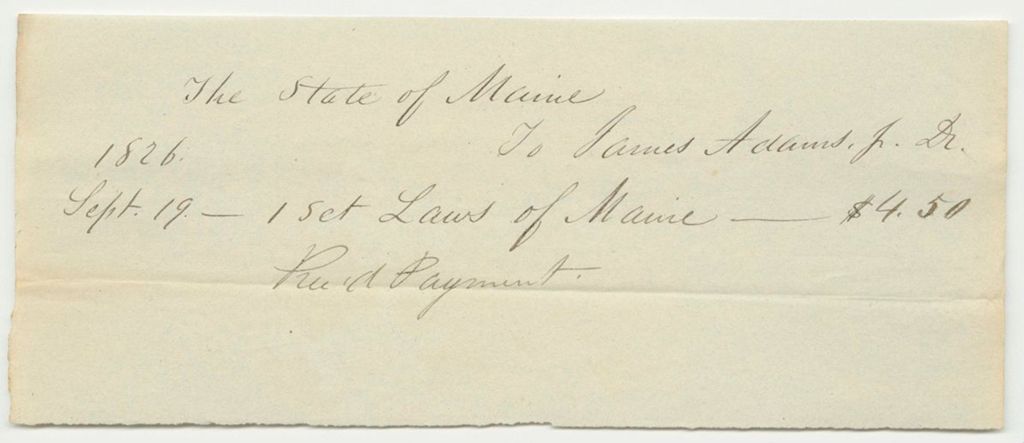 The State of Maine
To James Adams. jr. Dr.
1826.
Sept. 19. — 1 Set Laws of Maine — $4.50
Rec'd Payment.